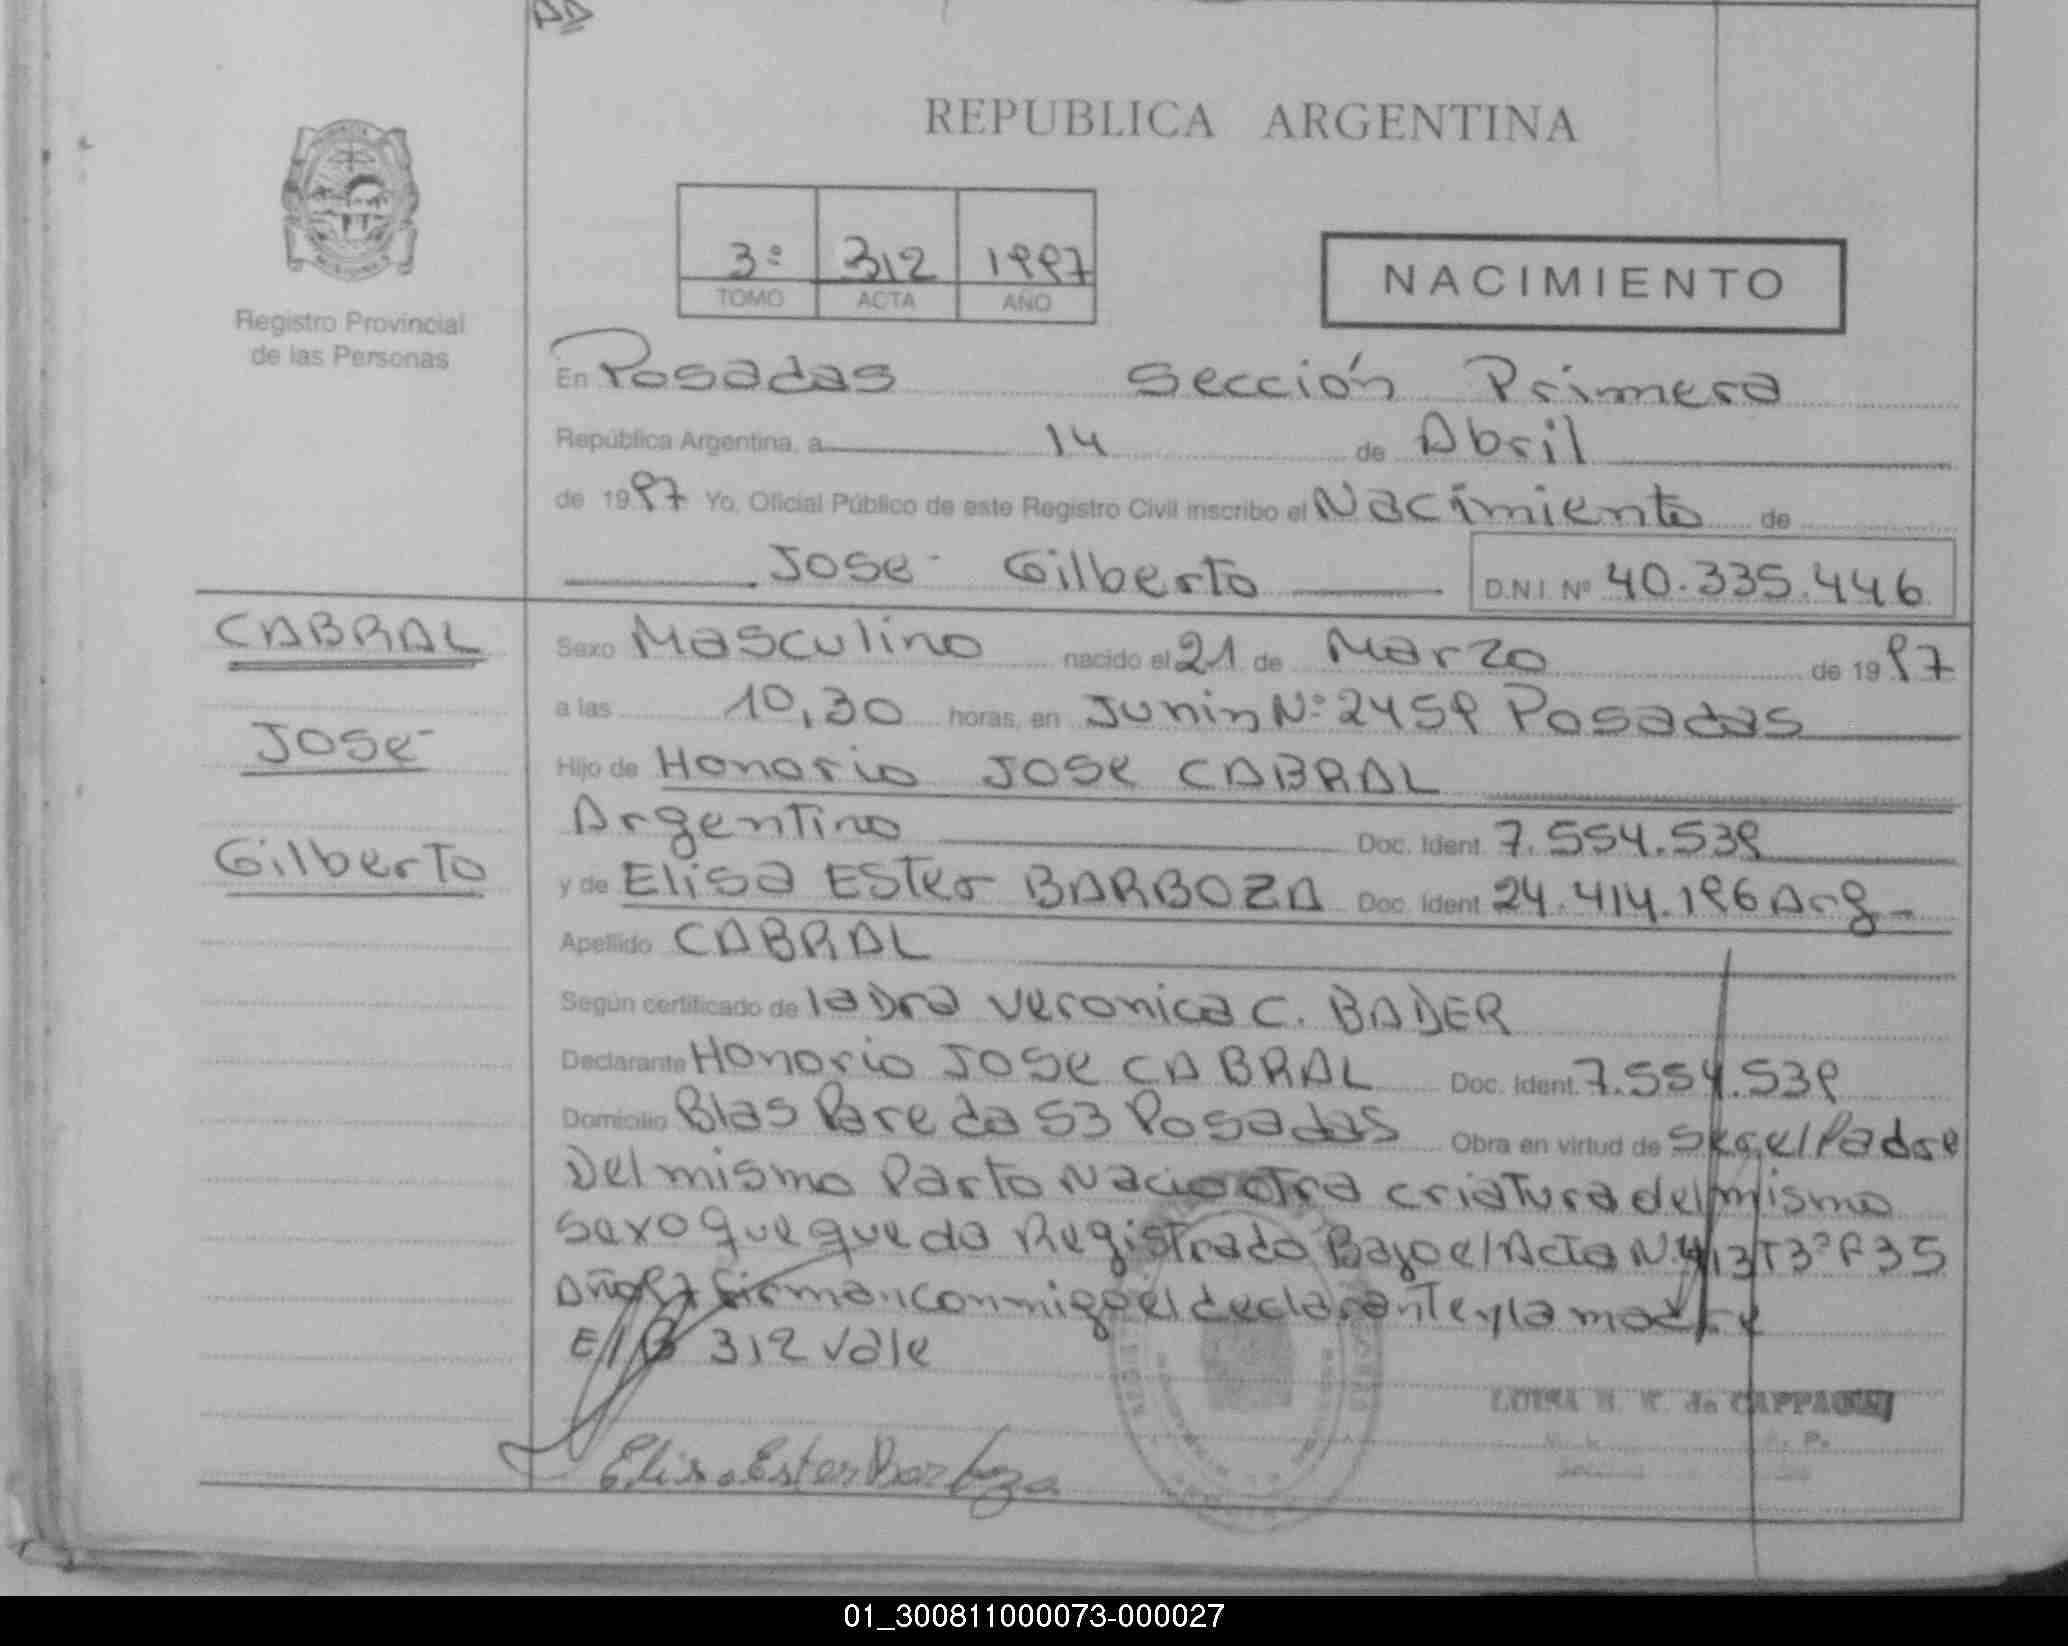 REPUBLICA ARGENTINA
3º 312 1997
TOMO ACTA AÑO
NACIMIENTO
Registro Provincial
de las Personas
En Posadas Sección Primera
República Argentina, a 14 de Abril
de 1997 Yo, Oficial Público de este Registro Civil inscribo el Nacimiento de
José Gilberto D.N.I. Nº 40.335.446
CABRAL
José
Gilberto
Sexo Masculino nacido el 21 de Marzo de 1997
a las 10,30 horas, en Junin Nº 2459 Posadas
Hijo de Honorio Jose CABRAL
Argentino Doc. Ident. 7.554.539
y de Elisa Ester BARBOZA Doc. Ident 24.414.196 Arg.
Apellido CABRAL
Según certificado de la Dra Veronica C. BADER
Declarante Honorio Jose CABRAL Doc. Ident. 7.554.539
Domicilio Blas Pareda 53 Posadas Obra en virtud de ser el Padre
Del mismo Parto Nacio otra criatura del mismo
sexo que queda Registrado Bajo el Acta Nº 313 T3º F35
Año 97 firman conmigo el declarante y la madre
E/ 312 vale
LUISA de
Elisa Ester Barboza
01_300811000073-000027